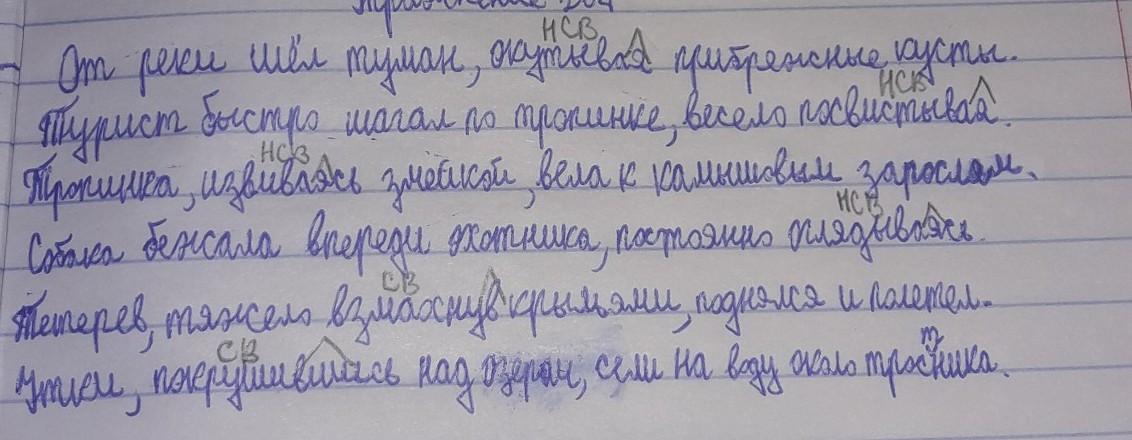 Упражнение 204
НСВ
От реки шёл туман, окутывая прибрежные кусты.
НСВ
Турист быстро шагал по тропинке, весело посвистывая.
НСВ
Тропинка, извиваясь змейкой, вела к камышовым зарослям.
НСВ
Собака бежала впереди охотника, постоянно оглядываясь.
СВ
Тетерев, тяжело взмахнув крыльями, поднялся и полетел.
СВ
Утки, покружившись над озером, сели на воду около тростника.